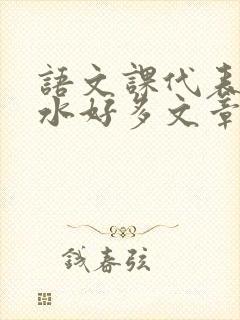 語文課代表
水好多文章
鋮春弦